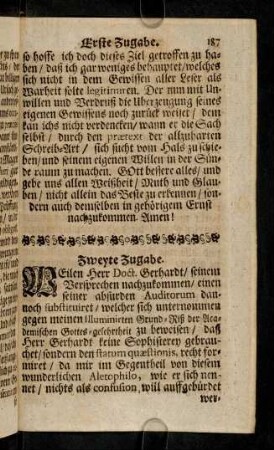 Erste Zugabe. 187
so hoffe ich doch dieses Ziel getroffen zu ha-
ben / daß ich gar weniges behauptet / welches
sich nicht in dem Gewissen aller Leser als
Warheit solte legitimiren. Der nun mit Un-
willen und Verdruß die Uberzeugung seines
eigenen Gewissens noch zurück weiset / dem
kan ichs nicht verdencken / wann er die Sach
selbst / durch den prætext der allzuharten
Schreib-Art / sich sucht vom Hals zu schie-
ben / und seinem eigenen Willen in der Sün-
de raum zu machen. GOtt bessere alles / und
gebe uns allen Weißheit / Muth und Glau-
ben / nicht allein das Beste zu erkennen / son-
dern auch demselben in gehörigem Ernst
nachzukommen. Amen!
Zweyte Zugabe.
WEilen Herr Doct. Gerhardt / seinem
Versprechen nachzukommen / einen
seiner absurden Auditorum den-
noch substituiret / welcher sich unternommen
gegen meinen Illuminirten Grund-Riß der Aca-
demischen Gottes-gelehrtheit zu beweisen / daß
Herr Gerhardt keine Sophisterey gebrau-
chet / sondern den statum quæstionis, recht for-
miret / da mir im Gegentheil von diesem
wunderlichen Aletophilo, wie er sich nen-
net / nichts als confusion, will auffgebürdet
wer-